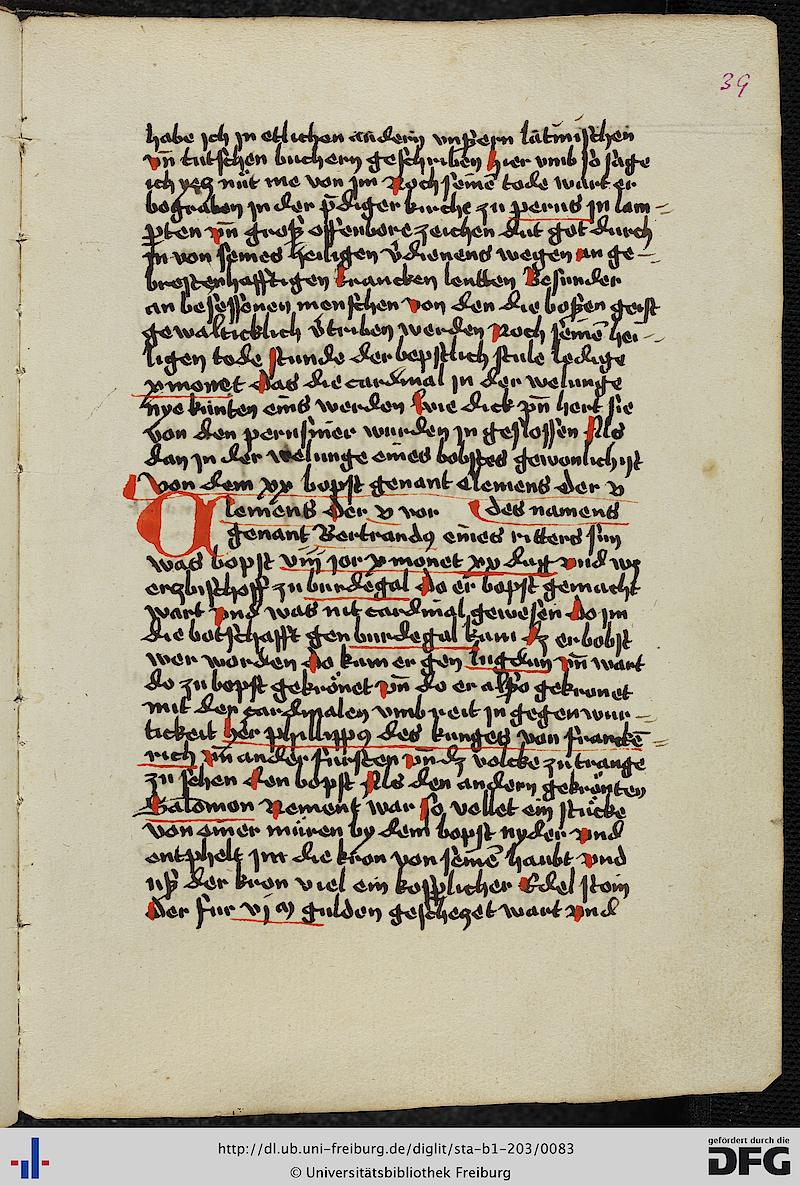 39
habe ich in etlichen andern vnßern latinischen
vn̄ tutschen buchern geschriben hier vmb so sage
ich yetz nüt me von jm Noch seinē tode wart er
begraben in der p̄diger kirche zu perus in lam-
parten vn̄ groß offenbore zeichen dut got durch
in von seines heiligen v̄dienens wegen an ge-
brestenhafftigen krancken leutten Besunder
an besessenen menschen von den die boßen geist
gewalticklich v̄triben werden Noch seinē hei-
ligen tode stunde der bepstlich stule ledige
x monet das die cardinal in der welunge
nye kunten eins werden wie dick vn̄ hert sie
von den perusiner wurden in geslossen Als
dan in der welunge eines bobstes gewonlich ist
von dem xx bopst genant Clemens der v
Clemens der v vor des namens
genant Bertrandus eines ritters sun
was bopst viij jor x monet xx dag vnd wz
erzbischoff zu burdegal Do er bopst gemacht
wart vnd was nit cardinal gewesen Do im
die botschafft gen burdegal kam dz er bobst
wer worden Do kam er gen lugdun vn̄ wart
do zu bopst gekrönet vn̄ do er also gekronet
mit den cardinalen vmb reit in gegenwur-
tickeit her phillippus des kunges von franckē
rich vn̄ ander fursten vn̄ dz volcke zu trange
zu sehen den bopst Als den andern gekrönten
Salomon Nement war so vellet ein stücke
von einer müren by dem bopst nyder vnd
entphelt im die kron von seinē haubt vnd
uß der kron viel ein kosplicher Edel stein
Der fur vj M gulden geschezet wart vnd
http://dl.ub.uni-freiburg.de/diglit/sta-b1-203/0083
© Universitätsbibliothek Freiburg
gefördert durch die
DFG